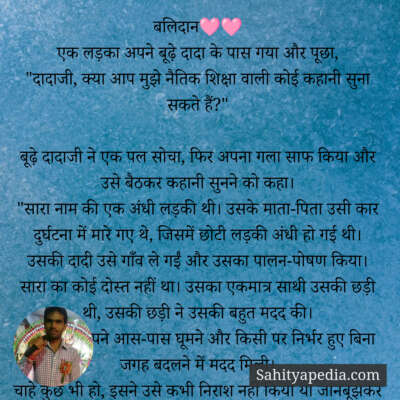 बलिदान🩷🩷
एक लड़का अपने बूढ़े दादा के पास गया और पूछा,
"दादाजी, क्या आप मुझे नैतिक शिक्षा वाली कोई कहानी सुना
सकते हैं?"
बूढ़े दादाजी ने एक पल सोचा, फिर अपना गला साफ किया और
उसे बैठकर कहानी सुनने को कहा।
"सारा नाम की एक अंधी लड़की थी। उसके माता-पिता उसी कार
दुर्घटना में मारे गए थे, जिसमें छोटी लड़की अंधी हो गई थी।
उसकी दादी उसे गाँव ले गईं और उसका पालन-पोषण किया।
सारा का कोई दोस्त नहीं था। उसका एकमात्र साथी उसकी छड़ी
थी, उसकी छड़ी ने उसकी बहुत मदद की।
आस-पास घूमने और किसी पर निर्भर हुए बिना
जगह बदलने में मदद मिली।
चाहे कुछ भी हो, इसने उसे कभी निराश नहीं किया या जानबूझकर
Sahityapedia.com